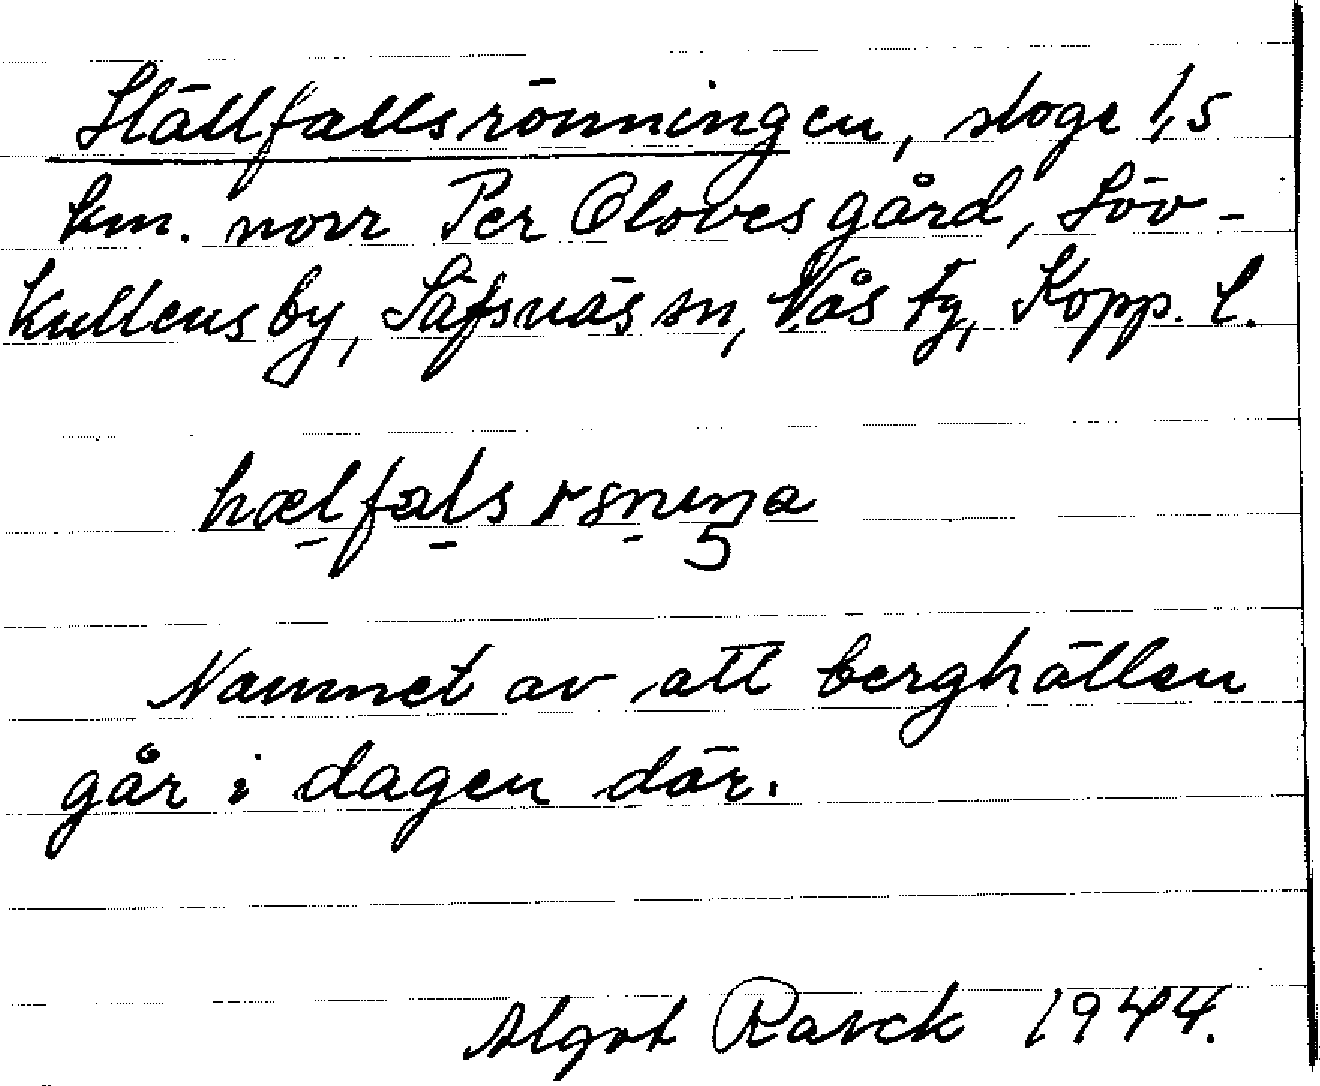 Hällfallsrönningen, sloge 1,5
km. norr Per Olovesgård, Löv-
kullens by, Säfsnäs sn, Nås tg, Kopp. l.
hælfals rsnıŋa
Namnet av att berghällen
går i dagen där.
Algot Rarck 1944.